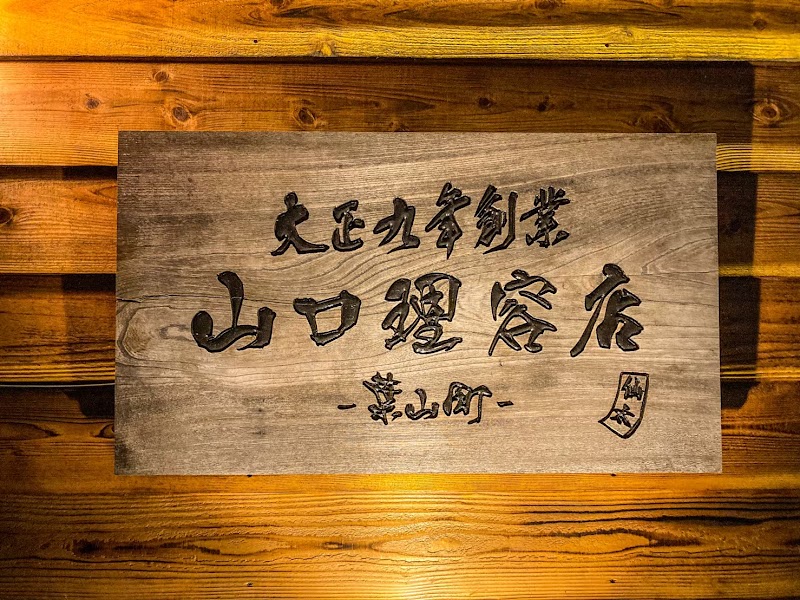 大正九年創業
山口理容店
-葉山町-